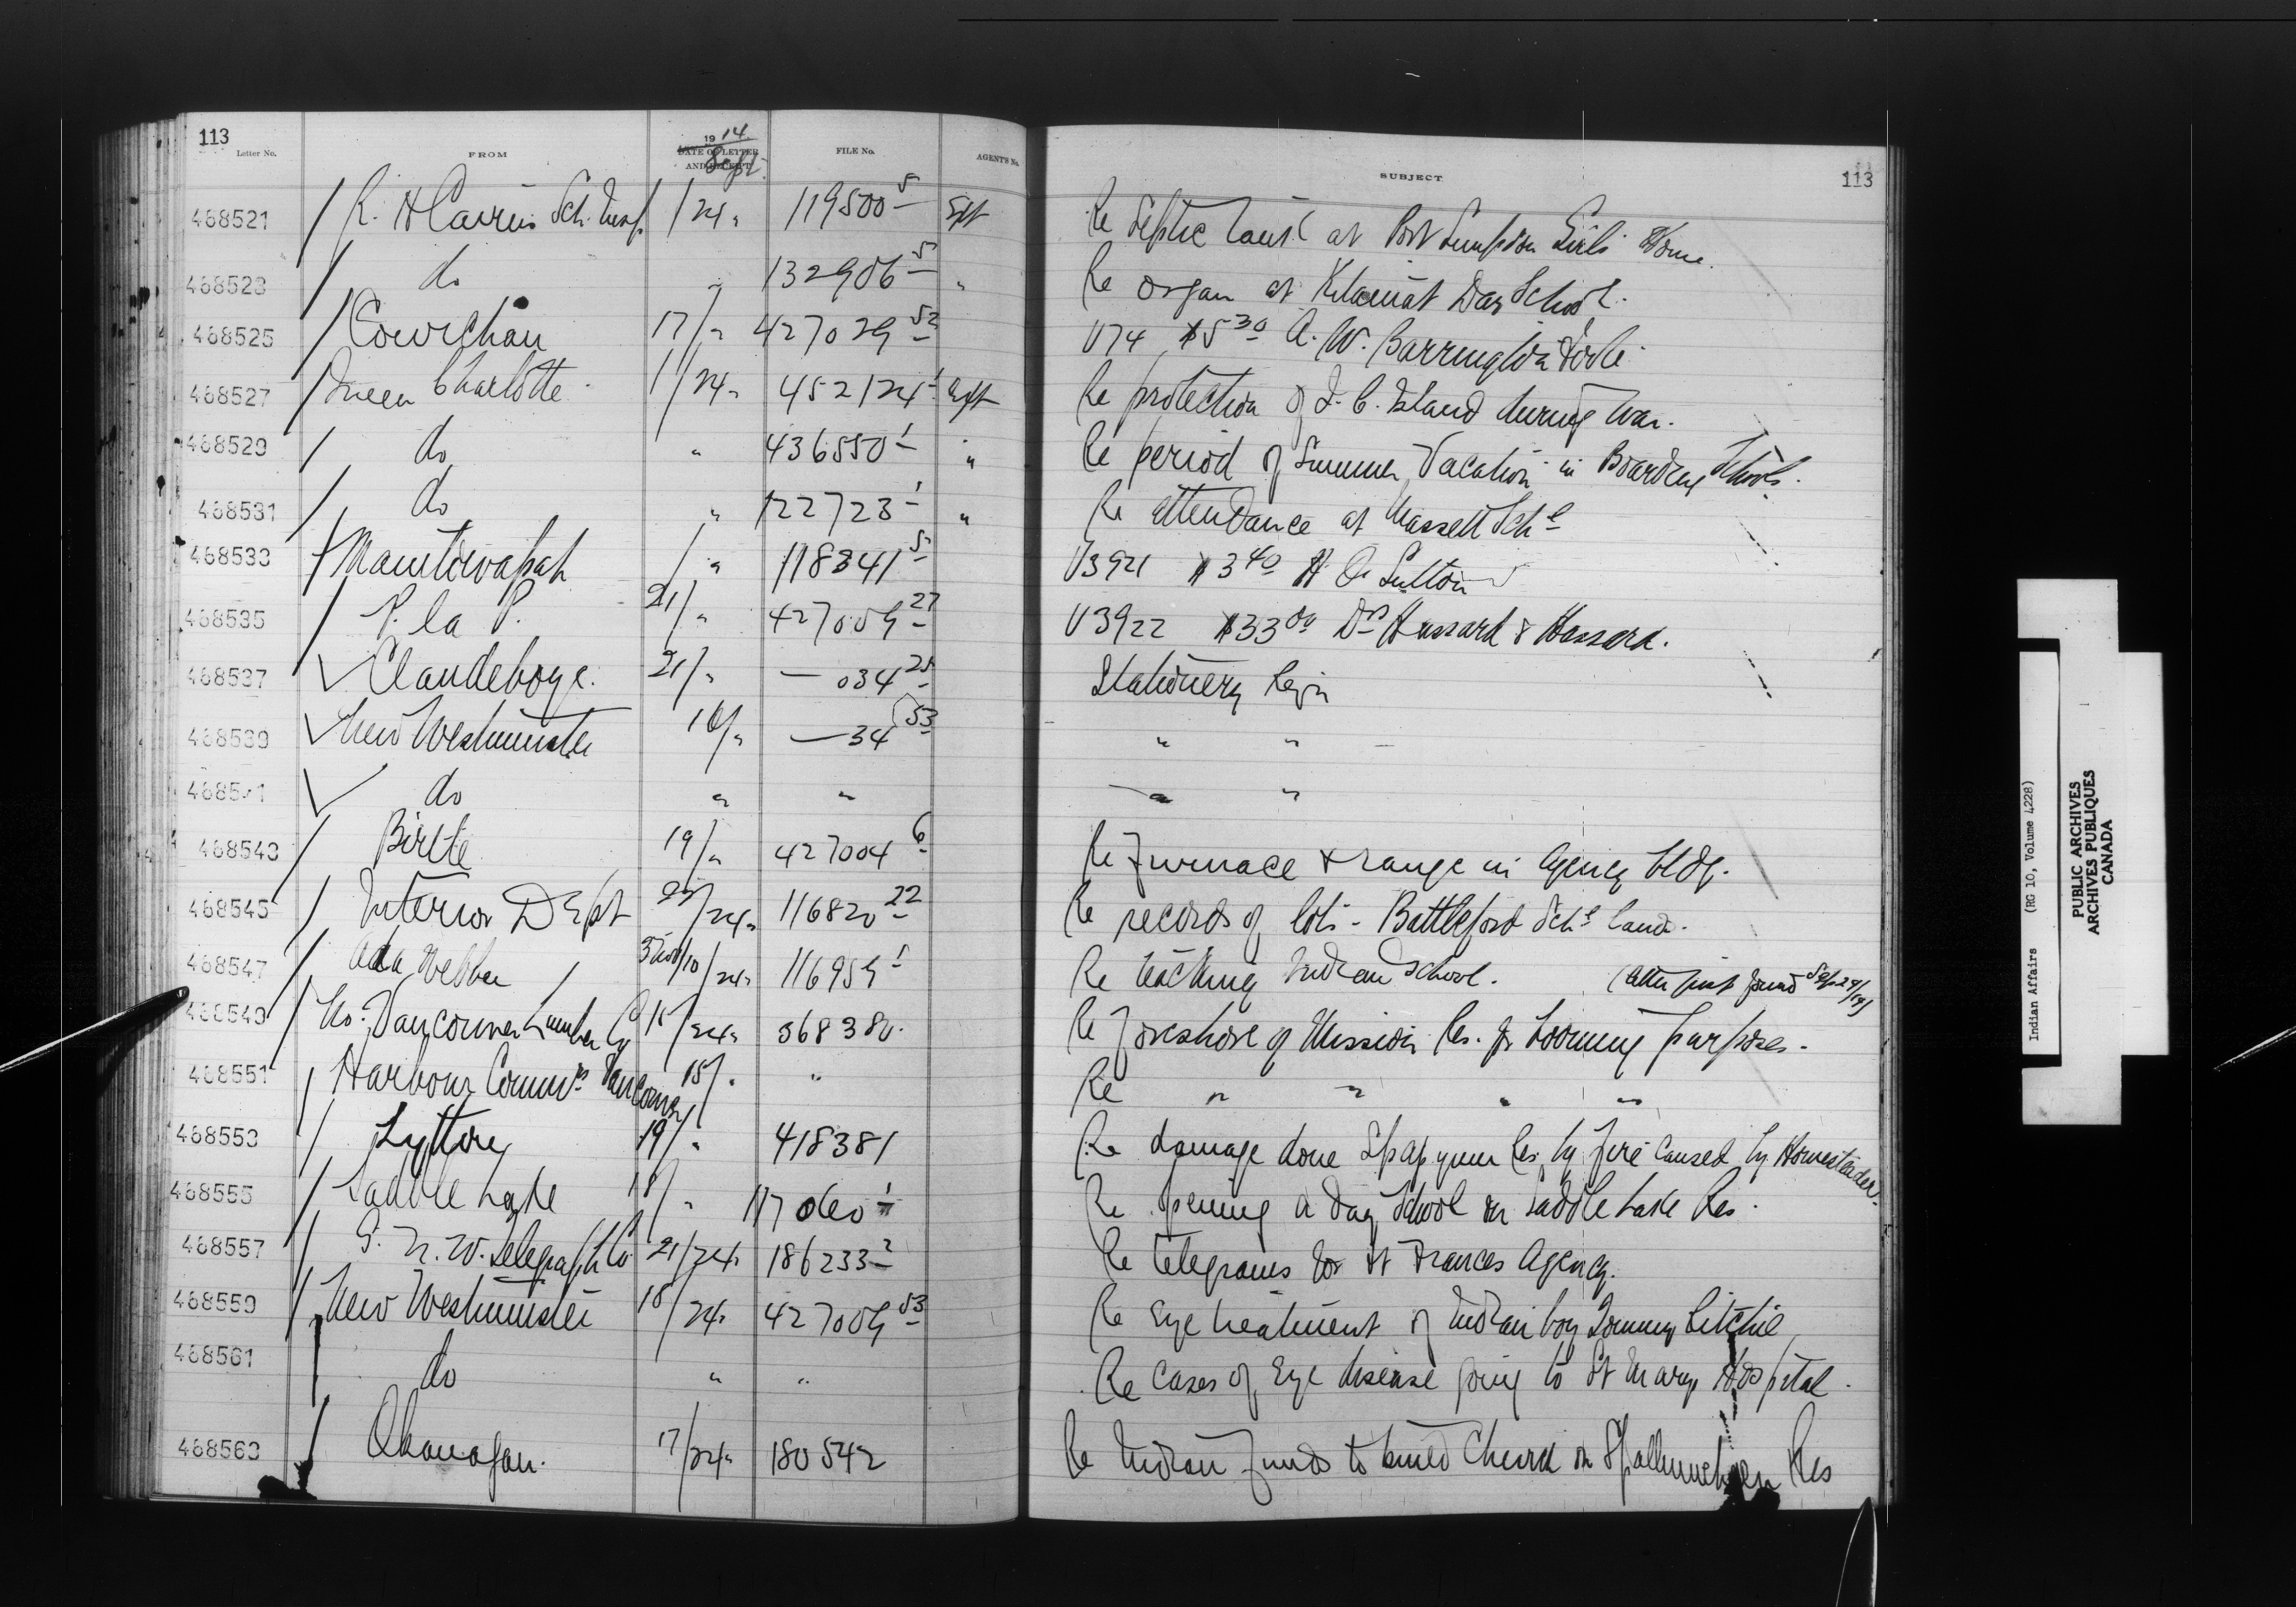 113
Letter No. FROM 1914 DATE OF LETTER AND RECEIPT Sept. FILE No. AGENT'S No. SUBJECT 113
468521 R. H Cairns Sch. Insp. 1/24 " 119500 5 Sept Re Septic Tank at Port Simpson Girls Home.
468523 do " 132906 5 " Re organ at Kitamat Day School.
468525 Cowichan 17/" 427029 52 V74 $5 30 A. W. Barrington
468527 Queen Charlotte 1/24 " 452124 1 Sept Re protection of Q. C. Island during War.
468529 do " 436550 1 " Re period of Summer Vacation in Boarding Schools.
468531 do " 122723 1 " Re attendance at Massett Schl
468533 Manitowapah /" 118341 5 V3921 $3 40 H O. Sutton
468535 P. la P. 21/" 427009 27 V3922 $33 00 Drs Hassard & Hassard.
468537 Clandeboye. 21/" — 034 25 Stationery Reqn
468539 New Westminster 16/" — 34 53 " "
468541 do " " " "
468543 Birtle 19/" 427004 6 Re Furnace & range in Agency bldg.
468545 Interior Dept 22/24 " 116820 22 Re records of lots - Battleford Schl land.
468547 Ada Webber /24 " 116959 1 Re teaching Indian School. (letter just found Sep 24/14)
468549 No. Vancouver Lumber Co 15/24 " 368380 Re foreshore of Mission Res. for booming purposes.
468551 Harbour Commrs Vancouver 15/" " Re " " " "
468553 Lytton 19/" 418381 Re damage done Spapyum Res. by fire caused by Homesteader.
468555 Saddle Lake 18/" 117060 1 Re opening a Day School on Saddle Lake Res.
468557 G. N. W. Telegraph Co. 21/24 " 186233 2 Re telegrams for Ft Frances Agency.
468559 New Westminster 18/24 " 427009 53 Re Eye treatment of Indian boy Tommy Ritchie
468561 do " " Re cases of Eye disease going to St Marys Hospital.
468563 Okanagan. 17/24 " 180542 Re Indian funds to build Church on Spallumcheen Res
Indian Affairs (RG 10, Volume 4228)
PUBLIC ARCHIVES
ARCHIVES PUBLIQUES
CANADA